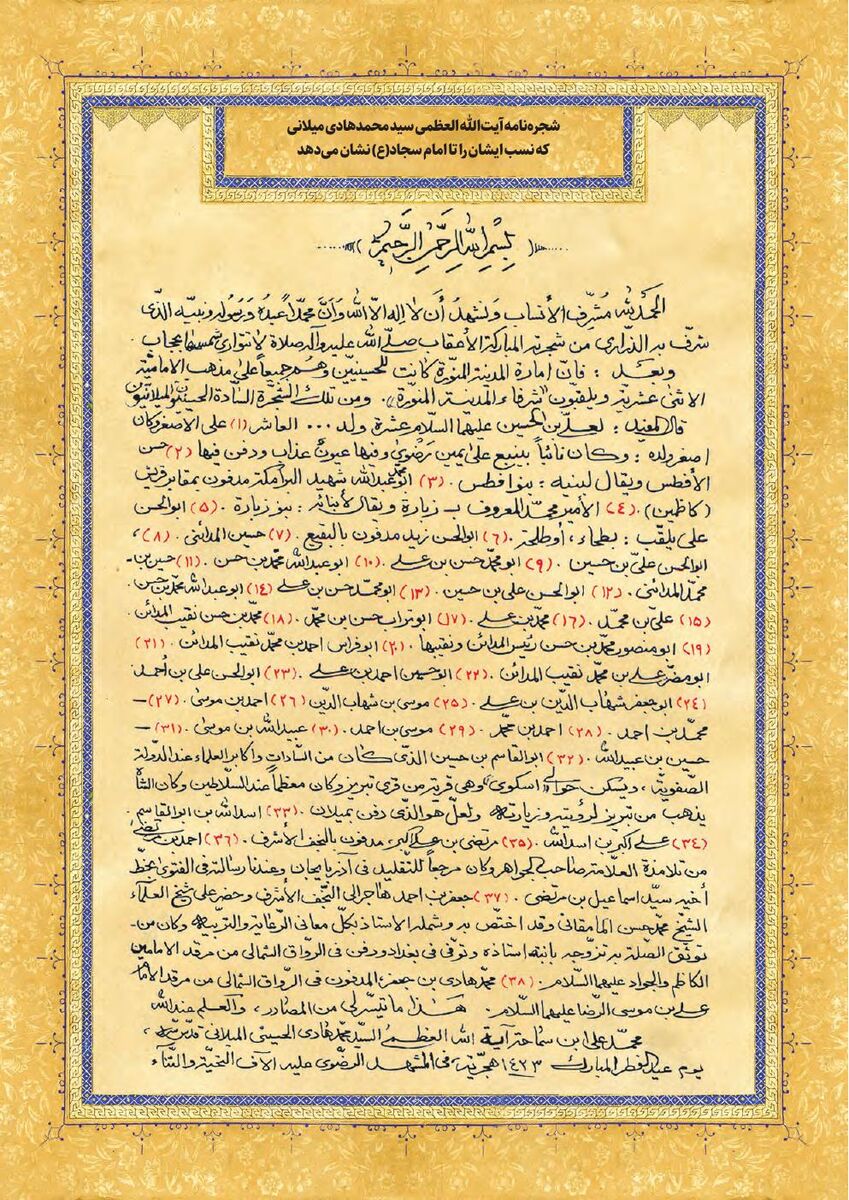 شجره‌نامه آیت‌الله العظمی سید محمدهادی میلانی
که نسب ایشان را تا امام سجاد(ع) نشان می‌دهد
بسم الله الرحمن الرحیم
الحمد لله مشرّف الأنساب ونشهد أن لا اله الّا الله وانّ محمّداً عبده ورسوله ونبیّه الذی
شرّف به الذراری من شجرته المبارکة الأعقاب صلّی الله علیه وآله صلاة لا تتواری شمسها بحجاب
وبعد : فانّ امارة المدینة المنوّرة کانت للحسینیّین وهم جمیعاً علی مذهب الامامیّة
الاثنی عشریّة ویلقّبون «شرفاء المدینة المنوّرة». ومن تلک الشجرة السّادة الحسینیّون المیلانیّون
قال المفید : لعلیّ بن الحسین علیهما السّلام خمسة عشرة ولد ... العاشر (۱) علی الاصغر وکان
اصغر ولده : وکان نائباً بینبع علی یمین رضوی وفیها عیون عذاب ودفن فیها (۲) حسن
الأفطس ویقال لبنیه : بنو افطس . (۳) ابو محمّد عبدالله شهید البرامکة مدفون بمقابر قریش
(کاظمین) . (۴) الأمیر محمّد المعروف بـ زبارة ویقال لأبنائه : بنو زبارة . (۵) ابوالحسن
علی یلقّب : بطحاء ، أو طلحة . (۶) ابوالحسن زید مدفون بالبقیع . (۷) حسین المدائنی . (۸) ،
ابوالحسن علیّ بن حسین . (۹) ابو محمّد حسن بن علی . (۱۰) ابو عبدالله محمّد بن حسن . (۱۱) حسین بن
محمّد المدائنی . (۱۲) ابوالحسن علی بن حسین . (۱۳) ابو محمّد حسن بن علی (۱۴) ابو عبدالله محمّد بن حسن
(۱۵) علیّ بن محمّد . (۱۶) محمّد بن علی . (۱۷) ابو تراب حسن بن محمّد . (۱۸) محمّد بن حسن نقیب المدائن
(۱۹) ابو منصور محمّد بن حسن رئیس المدائن ونقیبها . (۲۰) ابو فراس احمد بن محمّد نقیب المدائن . (۲۱)
ابو مضر علی بن محمّد نقیب المدائن . (۲۲) ابو حسین احمد بن علی . (۲۳) ابوالحسن علی بن أحمد
(۲۴) ابو جعفر شهاب الدّین بن علی . (۲۵) موسی بن شهاب الدّین (۲۶) احمد بن موسی . (۲۷) —
محمّد بن احمد . (۲۸) احمد بن محمّد . (۲۹) موسی بن احمد . (۳۰) عبیدالله بن موسی . (۳۱) —
حسین بن عبیدالله . (۳۲) ابوالقاسم بن حسین الذی کان من السّادات وأکابر العلماء عند الدّولة
الصّفویّة ، ویسکن حوالی «اسکوی» وهی قریة من قری تبریز وکان معظّماً عند السّلاطین وکان الشّاه
یذهب من تبریز لرؤیته وزیارته ولعلّ هو الذی دفن بمیلان . (۳۳) اسدالله بن ابوالقاسم
(۳۴) علی اکبر بن اسدالله . (۳۵) مرتضی بن علی اکبر مدفون بالنجف الأشرف . (۳۶) احمد بن مرتضی
من تلامذة العلّامة صاحب الجواهر وکان مرجعاً للتّقلید فی آذربایجان وعندنا رسالته فی الفتوی بخطّ
أخیه سیّد اسماعیل بن مرتضی . (۳۷) جعفر بن احمد هاجر الی النّجف الأشرف وحضر علی شیخ العلماء
الشّیخ محمّد حسن المامقانی وقد اختصّ به وشمله الاستاذ بکلّ معانی الرّعایة والتّربیة وکان من
توثّق الصّلة به تزوّجه بابنة استاذه وتوفّی فی بغداد ودفن فی الرّواق الشّمالی من مرقد الامامین
الکاظم والجواد علیهما السّلام . (۳۸) محمّد هادی بن جعفر ، المدفون فی الرّواق الشّمالی من مرقد الامام
علی بن موسی الرّضا علیهما السّلام . هذا ما تیسّر لی من المصادر ، والعلم عندالله
محمّد علی ابن سماحة آیة الله العظمی السیّد محمّد هادی الحسینی المیلانی قدّس سرّه ،
یوم عید الفطر المبارک ۱۴۲۳ هجریّة ، فی المشهد الرّضوی علیه الآف التّحیّة والثّناء